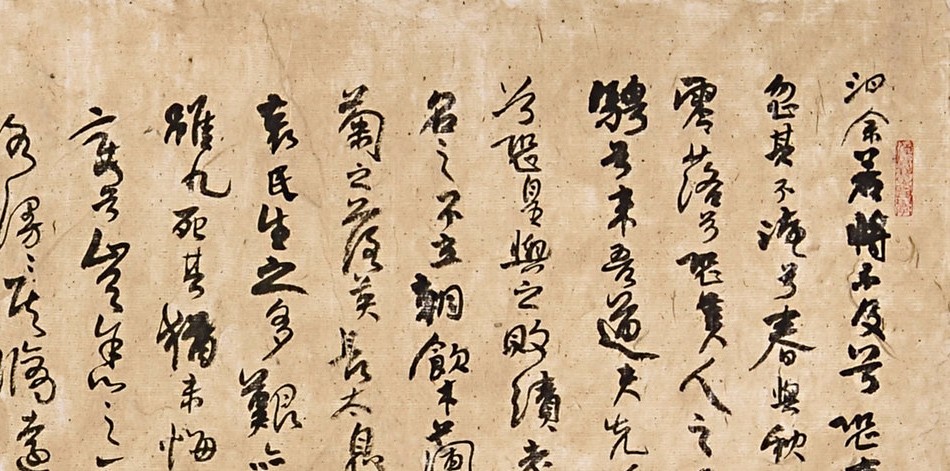 汩余若將不及兮恐
忽其不淹兮春與秋
零落兮恐美人之
騁兮來吾道夫先
兮恐皇輿之敗績老
名之不立朝飲木蘭
菊之落英長太息
哀民生之多艱亦
雖九死其猶未悔
變兮豈余心之
路漫々其脩遠